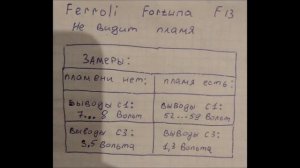 Ferroli Fortuna F13
Не видит пламя
Замеры:
пламени нет: пламя есть:
Выводы С1: Выводы С1:
7...8 Вольт 52...59 Вольт
Выводы С3: Выводы С3:
9,5 Вольта 1,3 Вольта